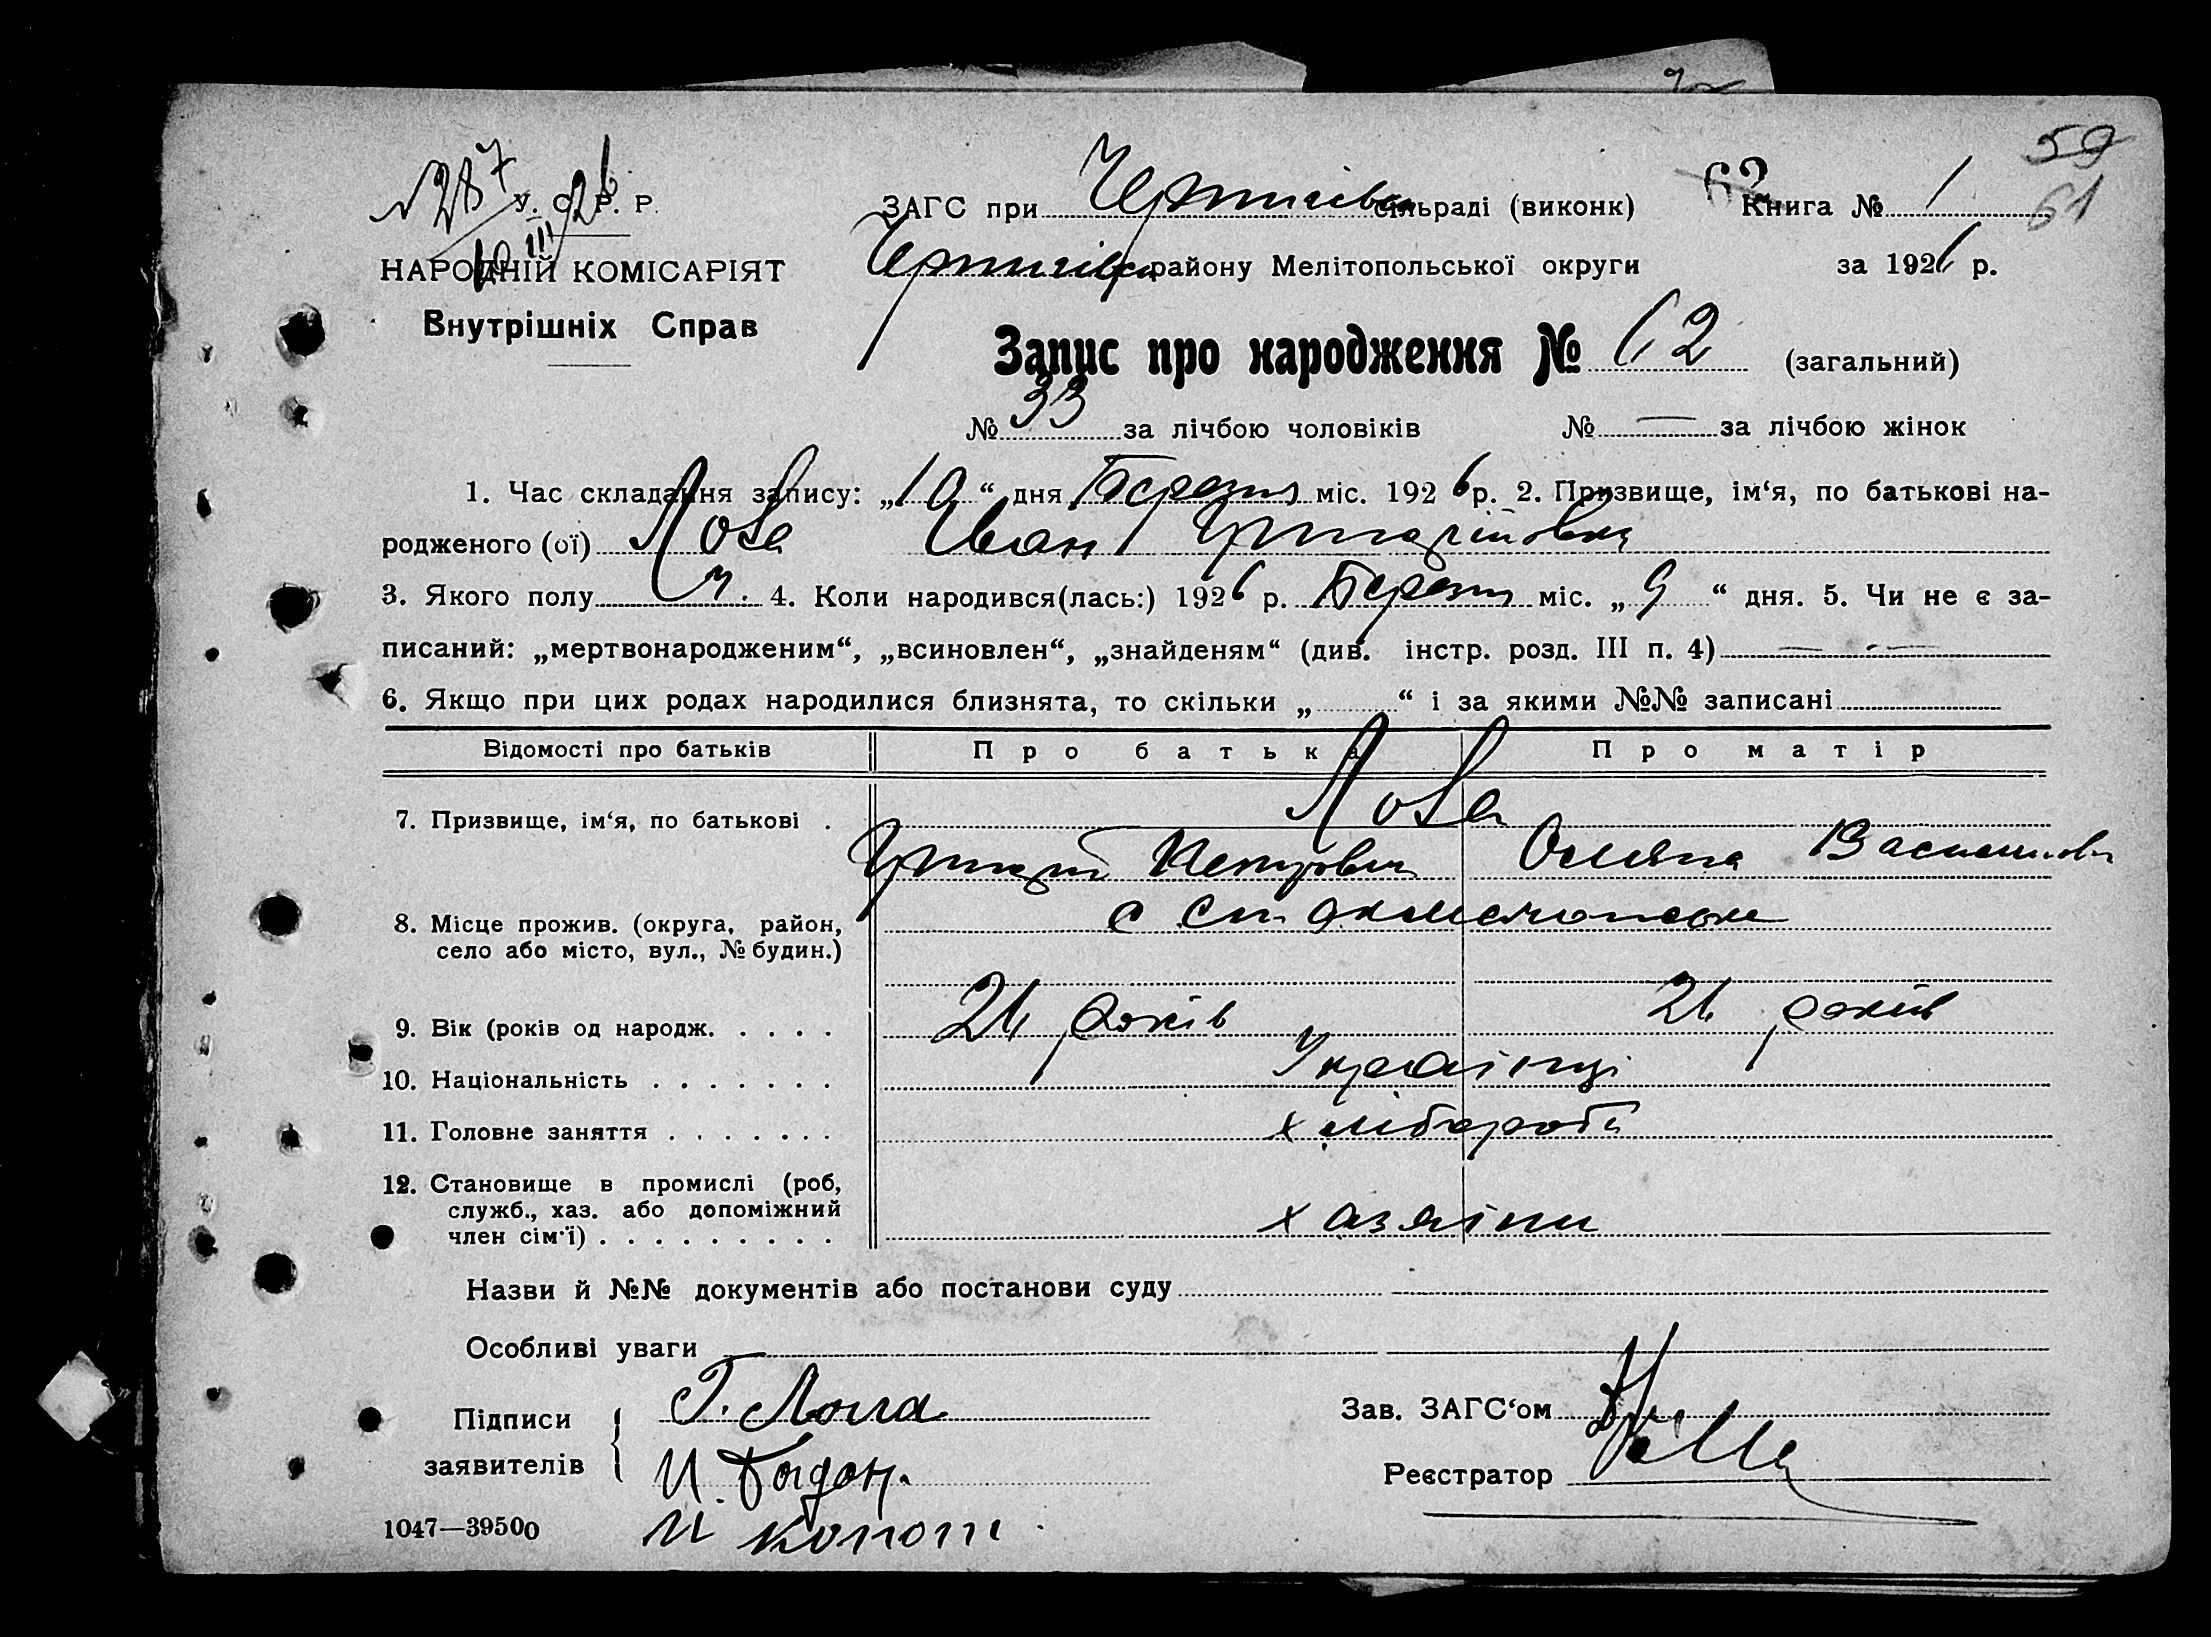 59
287 У. С. Р. Р. ЗАГС при Чернигівск сільраді (виконк) 62 Книга № 1 61
10/III 26
НАРОДНІЙ КОМІСАРІЯТ Чернигівск району Мелітопольської округи за 1926 р.
Внутрішніх Справ
Запис про народження № 62 (загальний)
№ 33 за лічбою чоловіків № — за лічбою жінок
1. Час складання запису: „10“ дня Березня міс. 1926 р. 2. Призвище, ім‘я, по батькові на-
родженого (ої) Іван
3. Якого полу ч. 4. Коли народився(лась:) 1926 р. Березня міс. „9“ дня. 5. Чи не є за-
писаний: „мертвонародженим“, „всиновлен“, „знайденям“ (див. інстр. розд. III п. 4) —
6. Якщо при цих родах народилися близнята, то скільки „ “ і за якими №№ записані
Відомості про батьків Про батька Про матір
7. Призвище, ім‘я, по батькові .
Петрович
8. Місце прожив. (округа, район,
село або місто, вул., № будин.)
9. Вік (років од народж. . . . . 21 років 21 років
10. Національність . . . . . . . Українці
11. Головне заняття . . . . . . . хлібороби
12. Становище в промислі (роб,
служб., хаз. або допоміжний
член сім‘ї) . . . . . . . . . хазяіни
Назви й №№ документів або постанови суду
Особливі уваги
Підписи Г. Зав. ЗАГС‘ом
заявителів И. Реєстратор
1047—39500 И